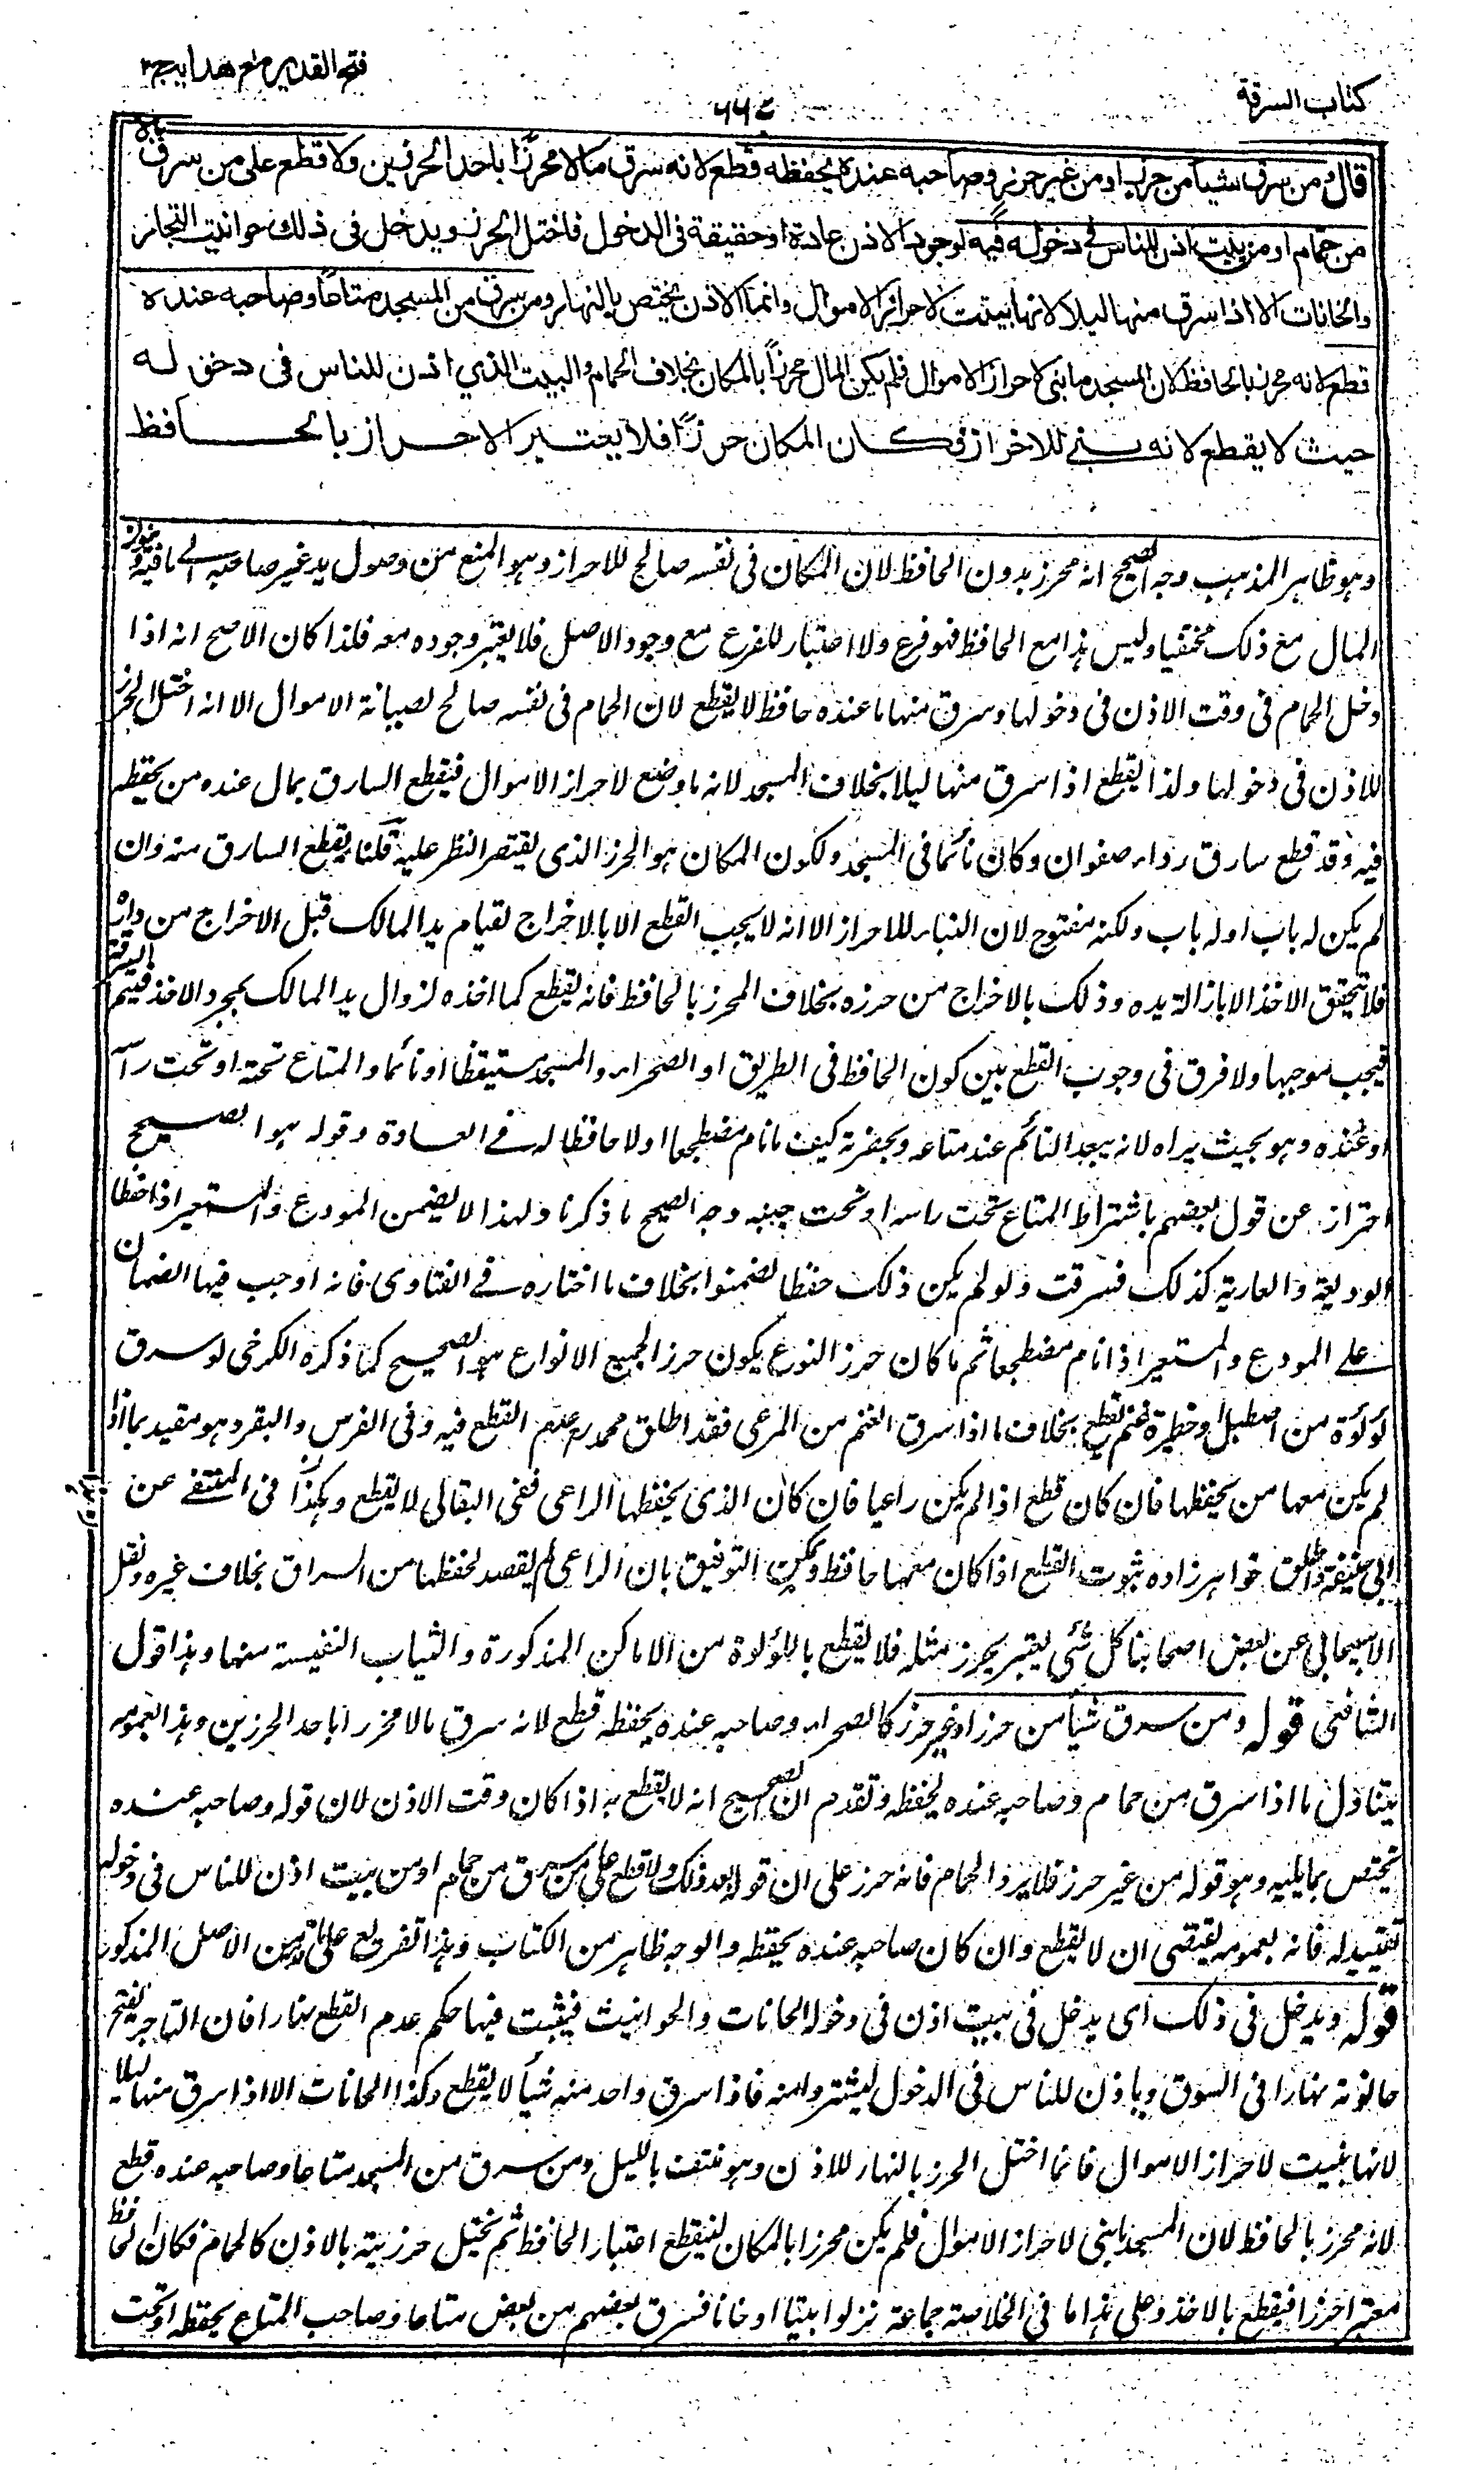 كتاب السرقة
فتح القدير مع هدايہ ج٣
قال ومن سرق شيأ من حرز او من غير حرز وصاحبه عنده يحفظه قطع لانه سرق مالا محرزاً باحد الحرزين ولا قطع على من سرق مالا
من حمام او من بيت اذن للناس فى دخوله فيه لوجود الاذن عادة او حقيقة فى الدخول فاختل الحرز ويدخل فى ذلك حوانيت التجار
والخانات الا اذا سرق منها ليلا لانها بنيت لاحراز الاموال وانما الاذن يختص بالنهار ومن سرق من المسجد متاعاً وصاحبه عنده
قطع لانه محرز بالحافظ لان المسجد ما بنى لاحراز الاموال فلم يكن المال محرزاً بالمكان بخلاف الحمام والبيت الذي اذن للناس فى دخوله
حيث لا يقطع لانه بنى للاحراز فكان المكان حرزاً فلا يعتبر الاحراز بالحافظ
وہو ظاہر المذہب وجہ الصحيح انہ محرز بدون الحافظ لان المكان فى نفسہ صالح للاحراز وہو المنع من وصول يد غير صاحبہ الى ما فيہ
المال مع ذلك مختفيا وليس ہذا مع الحافظ فہو فرع ولا اعتبار للفرع مع وجود الاصل فلا يعتبر وجوده معہ فلذا كان الاصح انہ اذا
دخل الحمام فى وقت الاذن فى دخولہا وسرق منہا ما عنده حافظ لا يقطع لان الحمام فى نفسہ صالح لصيانة الاموال الا انہ اختل الحرز
للاذن فى دخولہا ولذا يقطع اذا سرق منہا ليلا بخلاف المسجد لانہ ما وضع لاحراز الاموال فيقطع السارق بمال عنده من يحفظہ
فيہ وقد قطع سارق رداء صفوان وكان نائما فى المسجد ولكون المكان ہو الحرز الذى يقتصر النظر عليہ قلنا يقطع السارق منہ وان
لم يكن لہ باب او لہ باب ولكنہ مفتوح لان البناء للاحراز الا انہ لا يجب القطع الا بالاخراج لقيام يد المالك قبل الاخراج من داره
فلا يتحقق الاخذ الا بازالة يده وذلك بالاخراج من حرزه بخلاف المحرز بالحافظ فانہ يقطع كما اخذه لزوال يد المالك بمجرد الاخذ فيتم السرقة
فيجب موجبہا ولا فرق فى وجوب القطع بين كون الحافظ فى الطريق او الصحراء والمسجد مستيقظا او نائما والمتاع تحتہ او تحت راسہ
او عنده وہو بحيث يراه لانہ يعد النائم عند متاعہ وبحضرتہ كيف ما نام مضطجعا اولا حافظا لہ فى العادة وقولہ ہو الصحيح
احتراز عن قول بعضہم باشتراط المتاع تحت راسہ او تحت جنبہ وجہ الصحيح ما ذكرنا ولہذا لا يضمن المودع والمستعير اذا حفظا
الوديعة والعارية كذلك فسرقت ولو لم يكن ذلك حفظا لضمنوا بخلاف ما اختاره فى الفتاوى فانہ اوجب فيہا الضمان
على المودع والمستعير اذا نام مضطجعا ثم ما كان حرز النوع يكون حرز الجميع الانواع ہو الصحيح كما ذكره الكرخى لو سرق
لؤلؤة من اصطبل او حظيرة غنم يقطع بخلاف ما اذا سرق الغنم من المرعى فقد اطلق محمد رح عدم القطع فيہ وفى الفرس والبقر وہو مقيد بما اذا
لم يكن معہا من يحفظہا فان كان قطع اذا لم يكن راعيا فان كان الذى يحفظہا الراعى ففى البقالى لا يقطع وہكذا فى المنتقى عن
ابى حنيفة واطلق خواہر زاده ثبوت القطع اذا كان معہا حافظ ويمكن التوفيق بان الراعى لم يقصد لحفظہا من السراق بخلاف غيره ونقل
الاسبيجابى عن بعض اصحابنا كل شئ يعتبر بحرز مثلہ فلا يقطع باللؤلؤة من الاماكن المذكورة والثياب النفيسة منہا وہذا قول
الشافعى قولہ ومن سرق شيأ من حرز او غير حرز كالصحراء وصاحبہ عنده يحفظہ قطع لانہ سرق مالا محرزا باحد الحرزين وہذا بعمومہ
يتناول ما اذا سرق من حمام وصاحبہ عنده يحفظہ وتقدم ان الصحيح انہ لا يقطع بہ اذا كان وقت الاذن لان قولہ وصاحبہ عنده
يختص بما يليہ وہو قولہ من غير حرز فلا يرد الحمام فانہ حرز على ان قولہ بعد ذلك ولا قطع على من سرق من حمام او من بيت اذن للناس فى دخولہ
تقييد لہ فانہ بعمومہ يقتضى ان لا يقطع وان كان صاحبہ عنده يحفظہ والوجہ ظاہر من الكتاب وہذا تفريع على ما تقدم من الاصل المذكور
قولہ ويدخل فى ذلك اى يدخل فى بيت اذن فى دخولہ الخانات والحوانيت فيثبت فيہا حكم عدم القطع نہارا فان التاجر يفتح
حانوتہ نہارا فى السوق وياذن للناس فى الدخول ليشتروا منہ فاذا سرق واحد منہ شيأ لا يقطع وكذا الخانات الا اذا سرق منہا ليلا
لانہا بنيت لاحراز الاموال فانما اختل الحرز بالنہار للاذن وہو منتف بالليل ومن سرق من المسجد متاعا وصاحبہ عنده قطع
لانہ محرز بالحافظ لان المسجد ما بنى لاحراز الاموال فلم يكن محرزا بالمكان لينقطع اعتبار الحافظ ثم يختل حرزيتہ بالاذن كالحمام فكان الحافظ
معتبرا حرزا فيقطع بالاخذ وعلى ہذا ما فى الخلاصة جماعة نزلوا بيتا او خانا فسرق بعضہم من بعض متاعا وصاحب المتاع يحفظہ او تحت